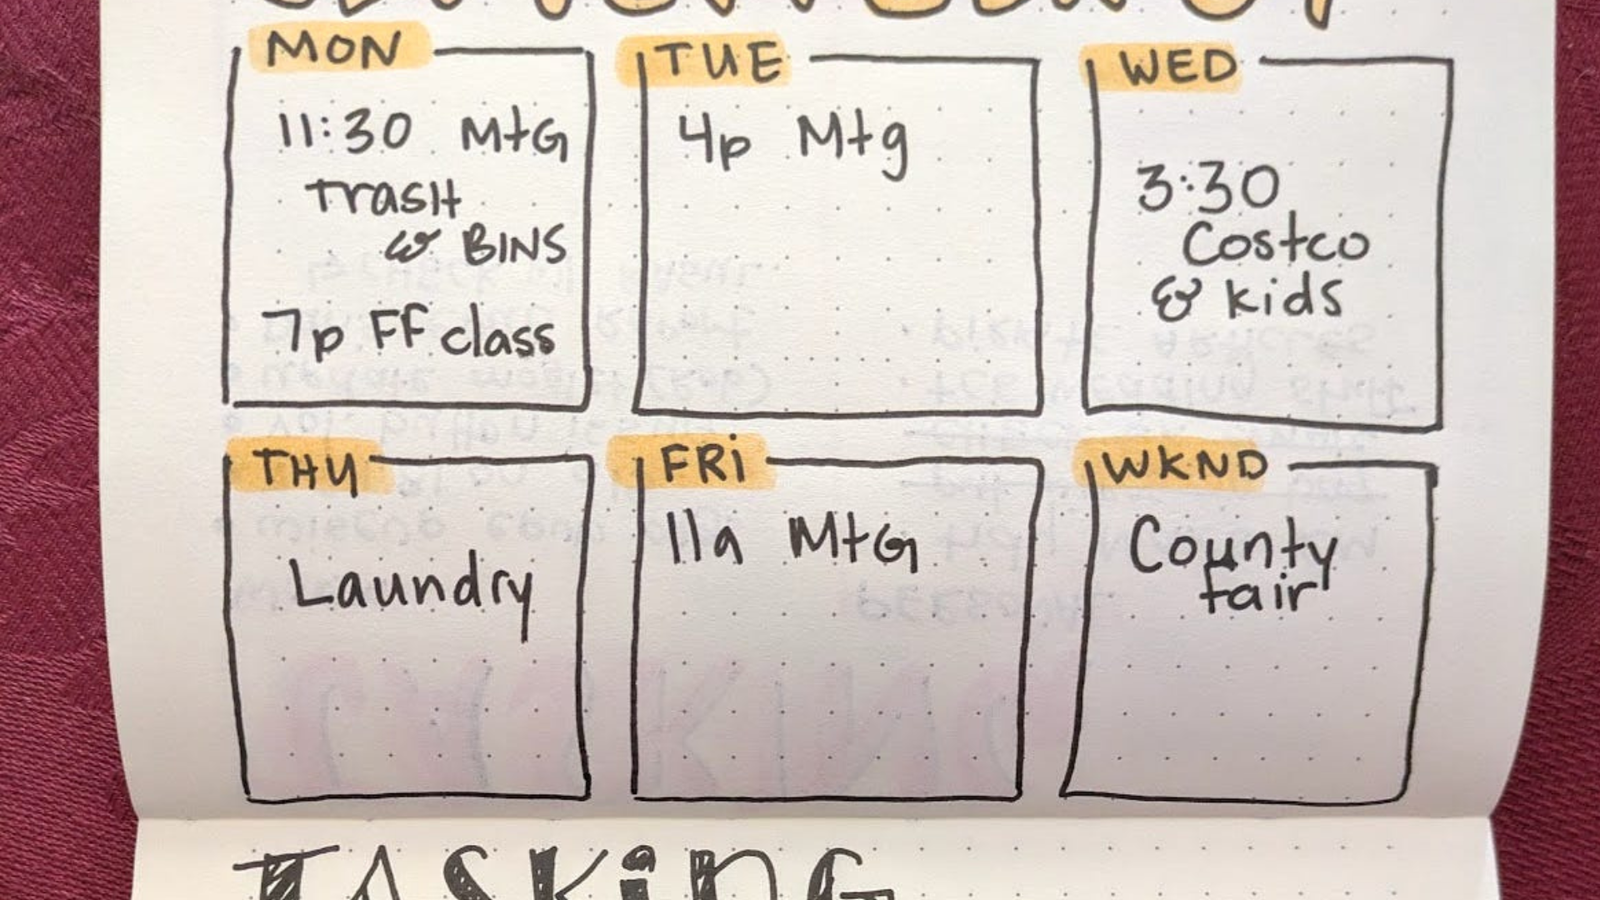 MON
11:30 MtG
Trash
& BINS
7p FF class
TUE
4p Mtg
WED
3:30
Costco
& kids
THU
Laundry
FRi
11a MtG
WKND
County
fair
TASKiNG